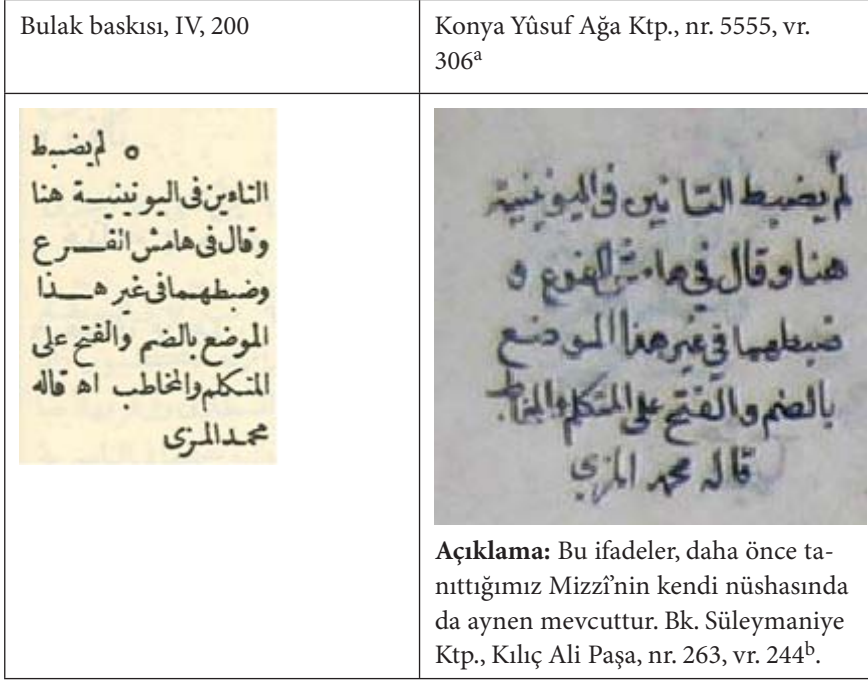 Bulak baskısı, IV, 200
Konya Yûsuf Ağa Ktp., nr. 5555, vr.
306a
ه لم يضبط
التاءين فى اليونينية هنا
وقال فى هامش الفرع
وضبطهما فى غير هذا
الموضع بالضم والفتح على
المتكلم والمخاطب اه قاله
محمد المزى
لم يضبط التائين في اليونينية
هنا وقال في هامش الفرع و
ضبطهما في غير هذا الموضع
بالضم والفتح على المتكلم والمخاطب
قاله محمد المزي
Açıklama: Bu ifadeler, daha önce ta-
nıttığımız Mizzî’nin kendi nüshasında
da aynen mevcuttur. Bk. Süleymaniye
Ktp., Kılıç Ali Paşa, nr. 263, vr. 244b.